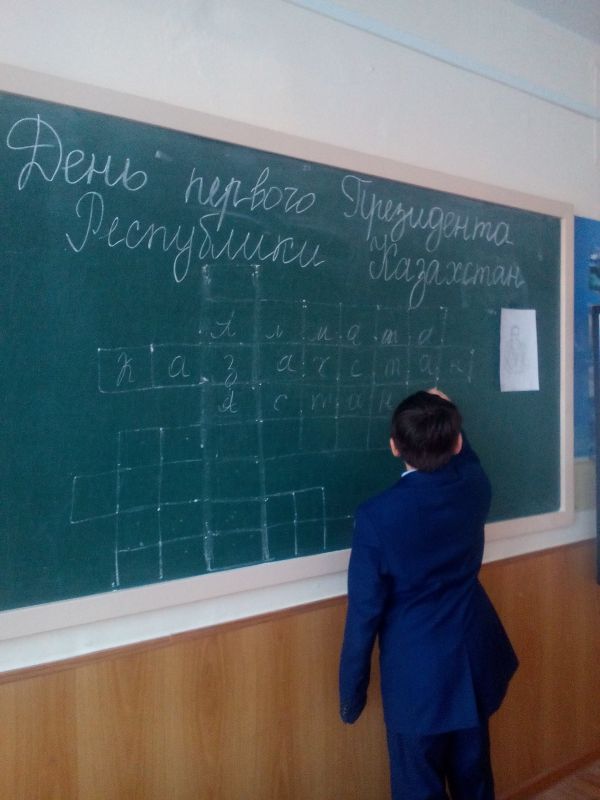 День первого Президента
Республики Казахстан
А л м а т а
К а з а х с т а н
А с т а н